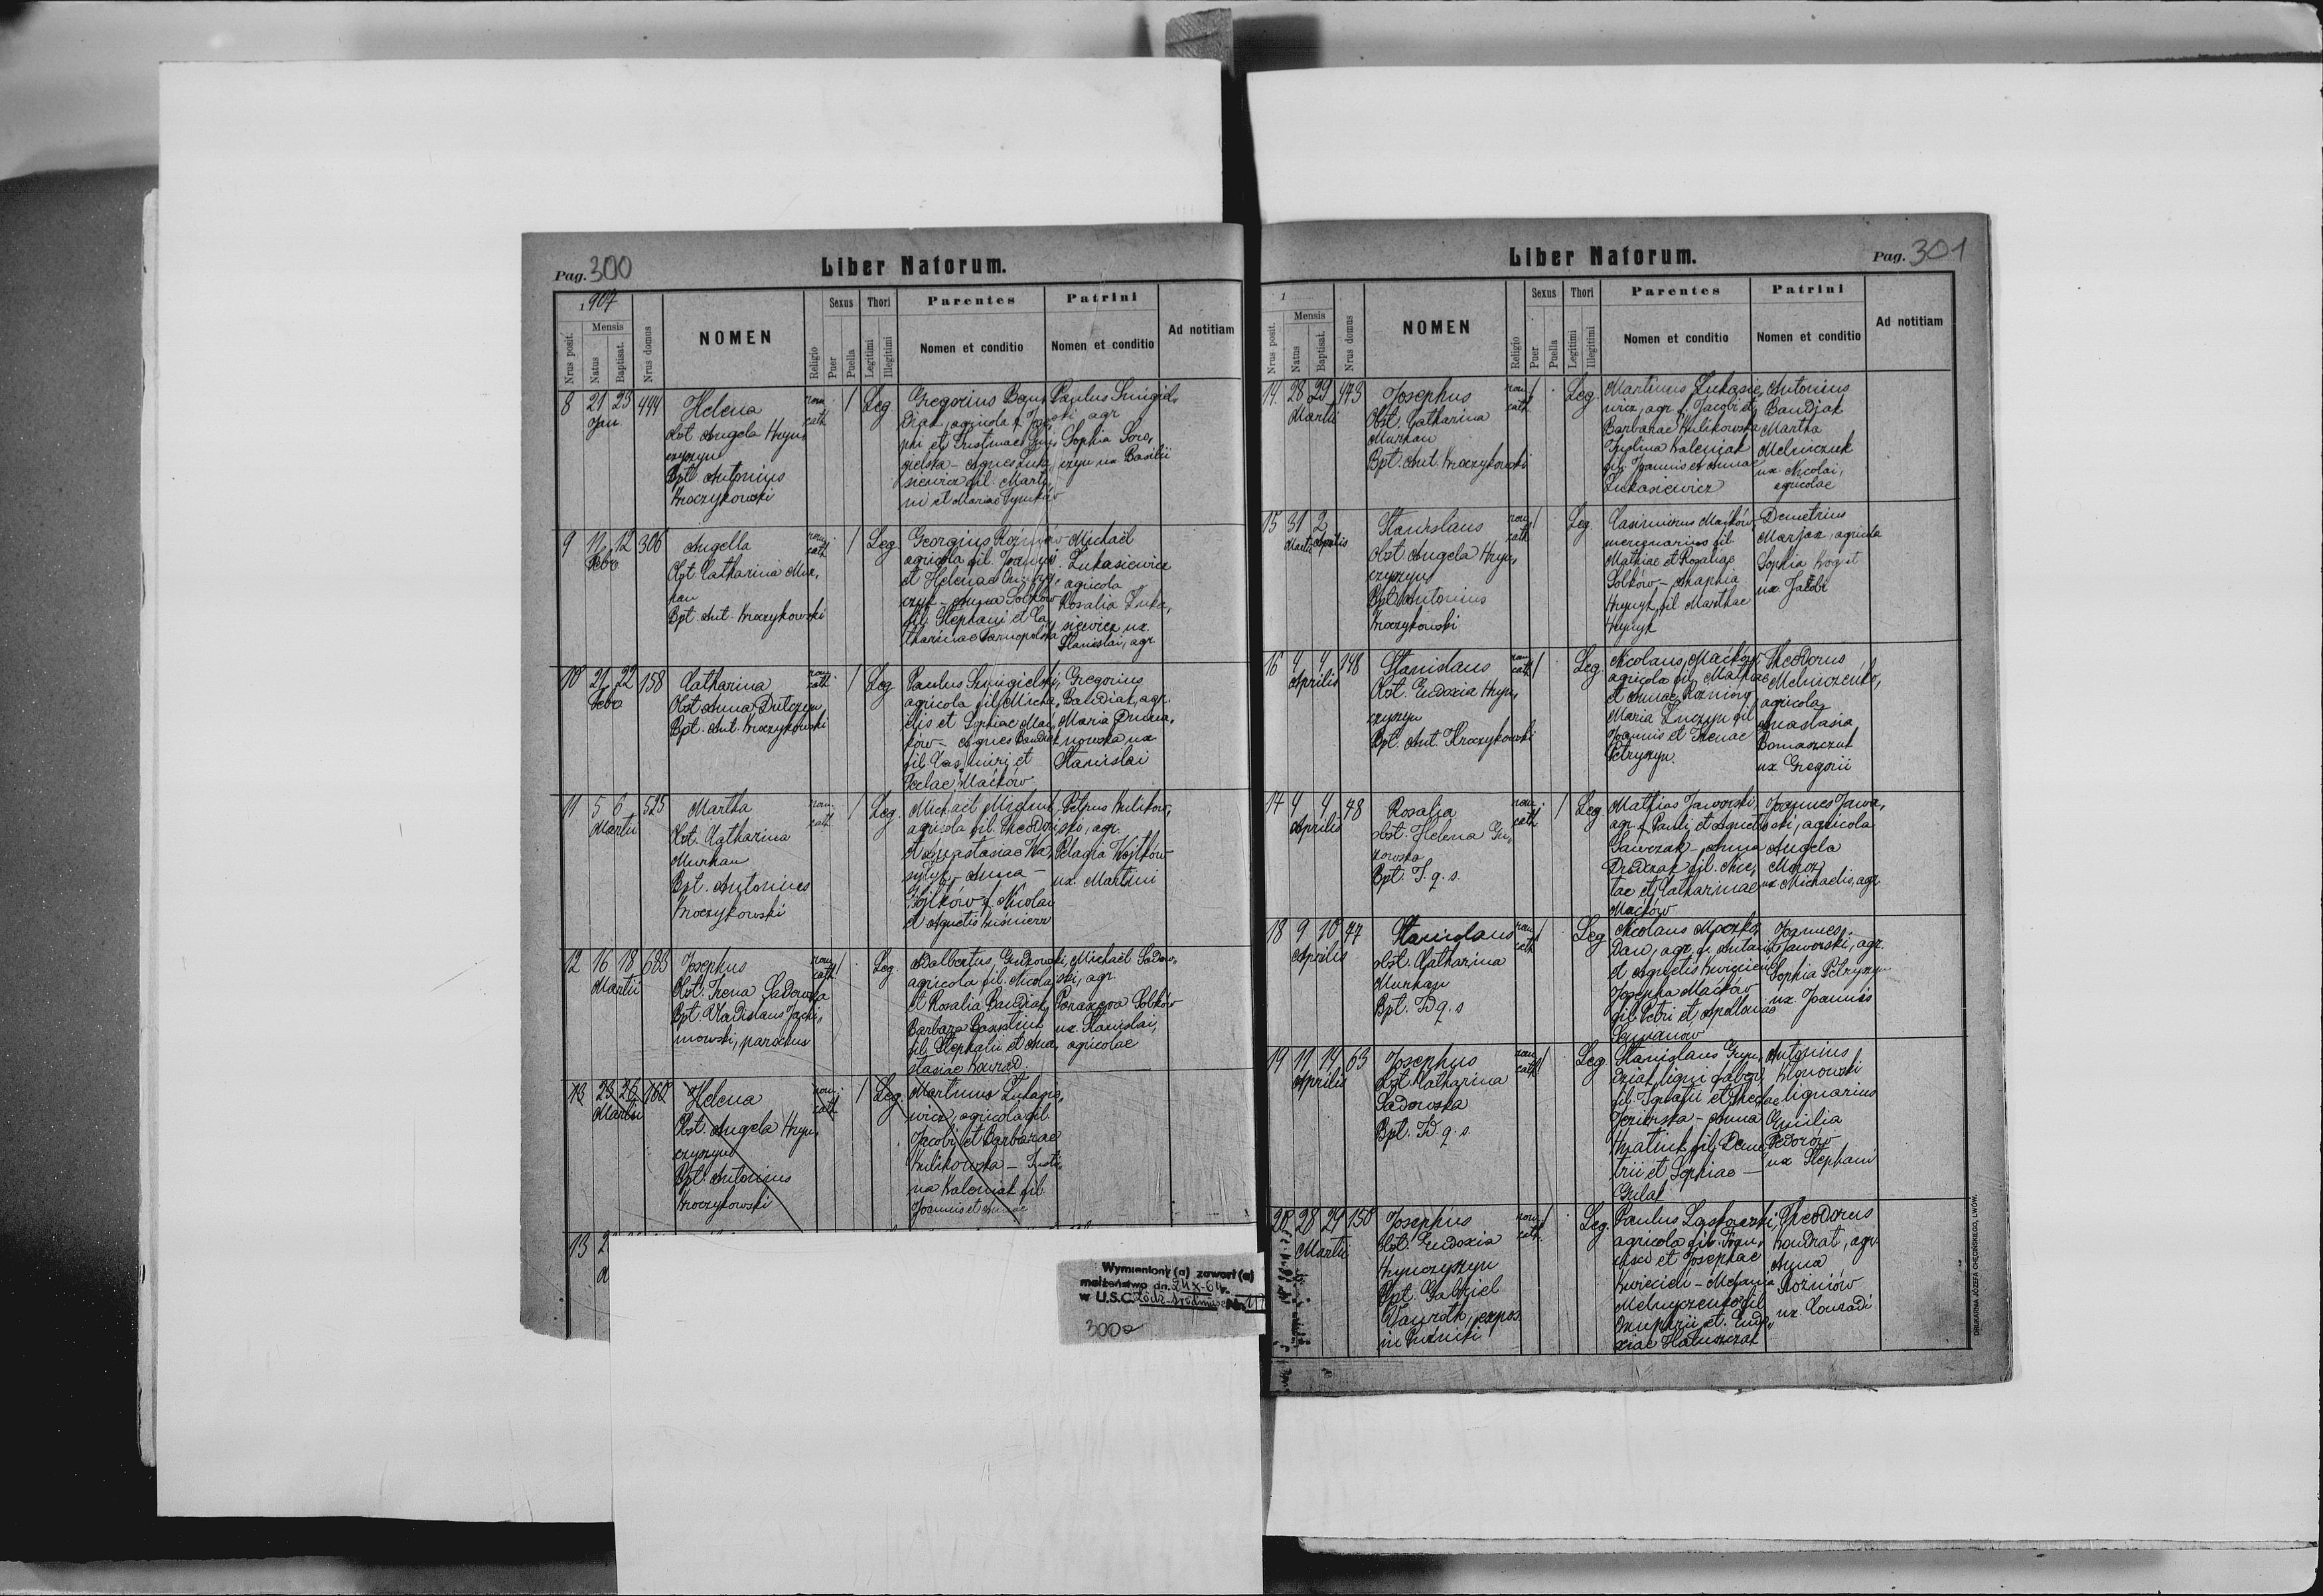 Pag. 300
Liber Natorum.
1907
Mensis
Nrus posit.
Natus
Baptisat.
Nrus domus
NOMEN
Religio
Sexus
Puer
Puella
Thori
Legitimi
Illegitimi
Parentes
Nomen et conditio
Patrini
Nomen et conditio
Ad notitiam
8 21 23 444
Jan
Helena
Obst Angela Hryn,
czyszyn
Bpt Antonius
Kroczykowski
rom.
cath
/ Leg
Gregorius Ban,
diak, agricola f. Jose,
phi et Justinae
Agnes Luka,
siewicz fil. Marti,
ni et Mariae
Paulus Smigiel,
ski, agr
Sophia
ux Basilii
9 11 12 306
Febr
Angella
Obst Catharina Mur,
kan
Bpt. Ant. Kroczykowski
rom.
cath
/ Leg
Georgius Rożniów
agricola fil. Joannis
et Helenae
Anna Sołków
fil. Stephani et Ca,
tharinae Tarnopolska
Michaël
Łukasiewicz
agricola
Rosalia Łuka,
siewicz ux.
Stanislai, agr
10 21 22 158
Febr
Catharina
Obst Anna Dutczyn,
Bpt. Ant. Kroczykowski
rom.
cath
/ Leg
Paulus Smigielski,
agricola fil. Micha,
ëlis et Sophiae Mać,
ków - Agnes Bandiak
fil. Casimiri et
Teclae Maćków
Gregorius
Bandiak, agr.
Maria
ux
Stanislai
11 5 6 525
Martii
Martha
Obst. Catharina
Murkan
Bpt. Antonius
Kroczykowski
rom.
cath
/ Leg.
Michaël
agricola fil. Theodori
et Anastasiae Wa,
sylyk - Anna -
Wojtków f. Nicolai
et Agnetis Kuśnierz
Petrus Kulikow,
ski, agr.
Pelagia Wojtków
ux. Martini
12 16 18 683
Martii
Josephus
Obst. Irena Sadowska
Bpt. Vladislaus Jachi,
mowski, parochus
rom.
cath.
/ Leg.
Adalbertus Gutkowski,
agricola fil. Nicolai
et Rosalia Bandiak,
Barbara
fil. Stephani et Ana,
stasiae Konrad.
Michaël Sadow,
ski, agr
Paraxeva Sołków
ux. Stanislai,
agricolae
13 23 26 160
Martii
Helena
Obst. Angela Hryn,
czyszyn
Bpt. Antonius
Kroczykowski
rom.
cath
/ Leg.
Martinus Łukasie,
wicz, agricola fil.
Jacobi et Barbarae
Kulikowska - Justi,
na Kaleniak fil.
Joannis et Annae
13
Wymieniony (a) zawarł (a)
małżeństwo dn. 24 X-64 r.
w U.S.C. Łódź-Śródmieście Nr
300a
Liber Natorum.
Pag. 301
1
Mensis
Nrus posit.
Natus
Baptisat.
Nrus domus
NOMEN
Religio
Sexus
Puer
Puella
Thori
Legitimi
Illegitimi
Parentes
Nomen et conditio
Patrini
Nomen et conditio
Ad notitiam
14. 28 29 473
Martii
Josephus
Obst. Catharina
Murkan
Bpt. Ant. Kroczykowski
rom.
cath
/ Leg.
Martinus Łukasie,
wicz, agr f. Jacobi et
Barbarae Kulikowska
Justina Kaleniak
fil. Joannis et Annae
Łukasiewicz
Antonius
Bandjak
Martha
Melniczuk
ux. Nicolai,
agricolae
15 31 2
Martii Aprilis
Stanislaus
Obst Angela Hryn,
czyszyn
Bpt Antonius
Kroczykowski
rom.
cath
/ Leg.
Casimirus Maćków,
mercenarius fil.
Mathiae et Rosaliae
Sołków -
Hrynyk fil Marthae
Hrynyk
Demetrius
agricola
Sophia
ux Jacobi
16 4 4 148
Aprilis
Stanislaus
Obst. Eudoxia Hryn,
czyszyn
Bpt. Ant. Kroczykowski
rom.
cath
/ Leg.
Nicolaus Maćków
agricola fil. Mathiae
et Annae Rożniów
Maria fil
Joannis et Irenae
Petryszyn.
Theodorus
Melniczenko,
agricola
Anastasia
Romaszczuk
ux Gregorii
17 4 4 48
Aprilis
Rosalia
Obst. Helena Gu,
kowska
Bpt. I. q. s.
rom.
cath
/ Leg
Mathias Jaworski
agr. f. Pauli et Agnetis
Sawczak - Anna
fil. Nice,
tae et Catharinae
Maćków
Joannes Jawor,
ski, agricola
Angela
Moroz
ux Michaelis, agr.
18 9 10 47
Aprilis
Stanislaus
Obst. Catharina
Murkan
Bpt. I. q. s
rom.
cath
/ Leg
Nicolaus
agr. f. Antonii
et Agnetis Kwiecień
Josepha Maćków
fil. Petri et Apoloniae
Semanów
Joannes
Jaworski, agr.
Sophia Petryszyn
ux. Joannis
19 11 14 63
Aprilis
Josephus
Obst Catharina
Sadowska
Bpt. I. q. s
rom.
cath
/ Leg
Stanislaus
ligni faber
fil. Ignatii et Theclae
Jezierska - Anna
Hnatiuk fil. Deme,
trii et Sophiae -
Gulak
Antonius
Klonowski
lignarius
Emilia
Fedorów
ux Stephani
20 28 29 150
Martii
Josephus
Obst. Eudoxia
Hrynczyszyn
Bpt. Gabriel
expos.
in
rom.
cath.
/ Leg.
Paulus
agricola fil. Fran,
cisci et Josephae
Kwiecień - Melania
Melnyczenko fil.
Onuphrii et Eudo,
xiae
Theodorus
Kondrat, agr
Anna
Rożniów
ux. Conradi
DRUKARNIA JÓZEFA CHĘCIŃSKIEGO, LWÓW.